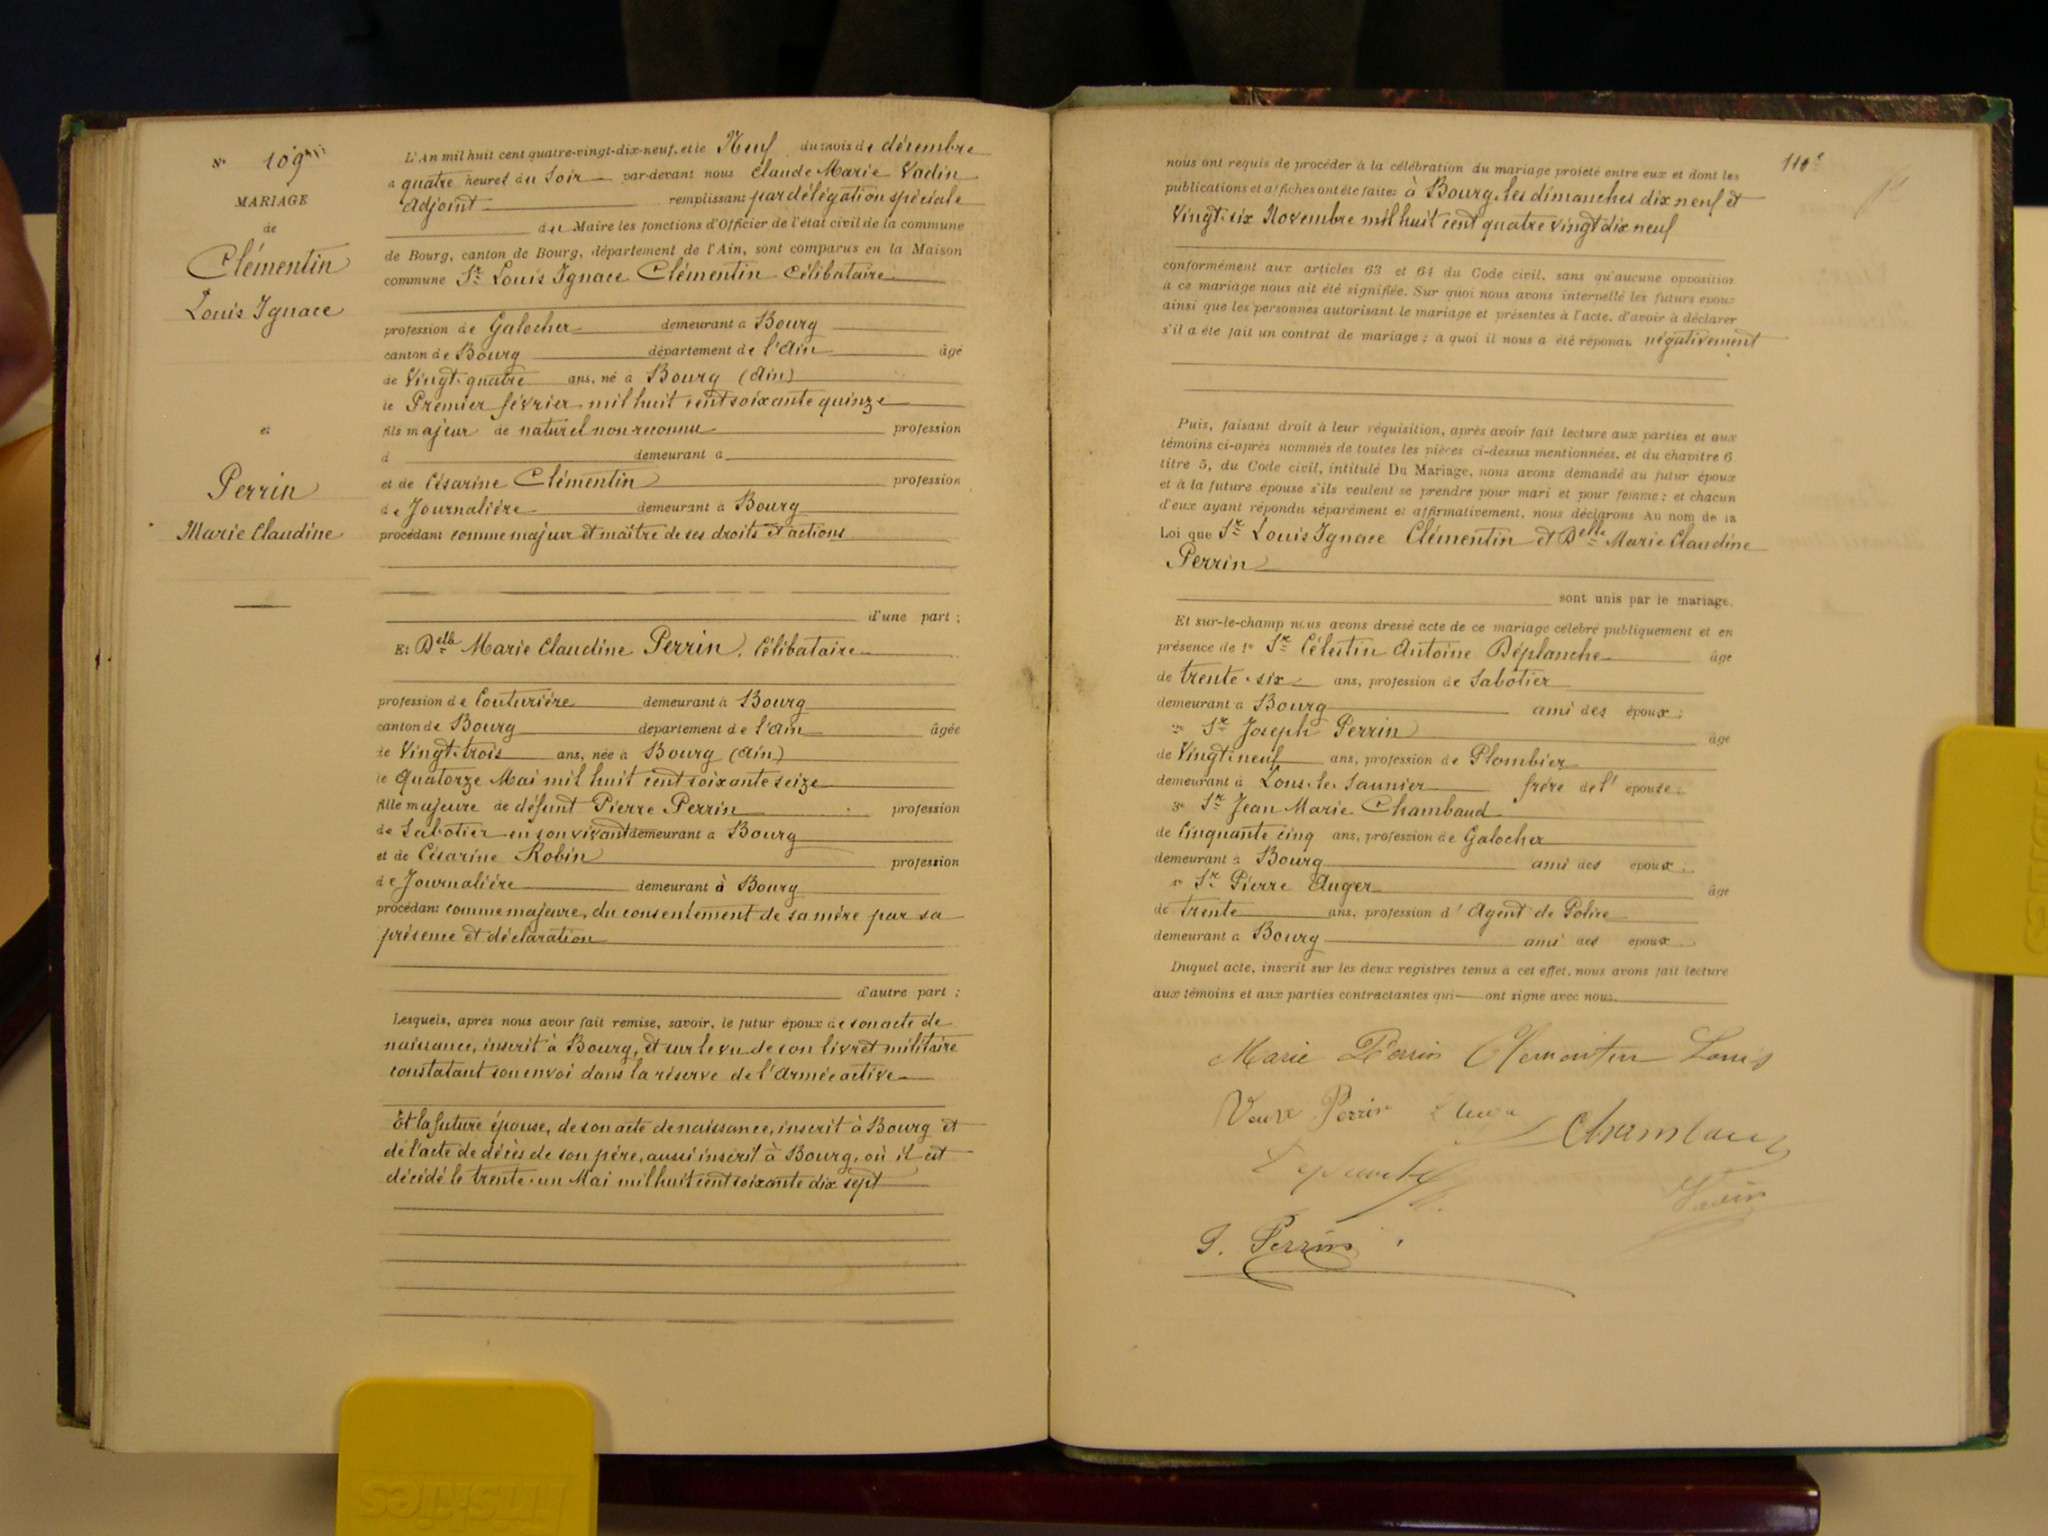 N° 109
MARIAGE
de
Clémentin
Louis Ignace
et
Perrin
Marie Claudine
L'An mil huit cent quatre-vingt-dix-neuf, et le Neuf du mois de décembre
a quatre heures du Soir par-devant nous Claude Marie Vadin
Adjoint remplissant par délégation spéciale
du Maire les fonctions d'Officier de l'état civil de la commune
de Bourg, canton de Bourg, département de l'Ain, sont comparus en la Maison
commune Sr Louis Ignace Clémentin Célibataire
profession de Galocher demeurant à Bourg
canton de Bourg département de l'Ain âgé
de Vingt-quatre ans, né à Bourg (Ain)
le Premier février mil huit cent soixante quinze
fils majeur de naturel non reconnu profession
d demeurant à
et de Césarine Clémentin profession
de Journalière demeurant à Bourg
procédant comme majeur et maître de ses droits et actions
d'une part ;
Et Delle Marie Claudine Perrin, Célibataire
profession de Couturière demeurant à Bourg
canton de Bourg département de l'Ain âgée
de Vingt-trois ans, née à Bourg (Ain)
le Quatorze Mai mil huit cent soixante seize
fille majeure de défunt Pierre Perrin profession
de Sabotier en son vivant demeurant à Bourg
et de Césarine Robin profession
de Journalière demeurant à Bourg
procédant comme majeure, du consentement de sa mère par sa
présence et déclaration
d'autre part ;
Lesquels, après nous avoir fait remise, savoir, le futur époux de son acte de
naissance, inscrit à Bourg, et sur le vu de son livret militaire
constatant son envoi dans la réserve de l'Armée active
Et la future épouse, de son acte de naissance, inscrit à Bourg et
de l'acte de décès de son père, aussi inscrit à Bourg, où il est
décédé le trente-un Mai mil huit cent soixante dix sept
110
nous ont requis de procéder à la célébration du mariage projeté entre eux et dont les
publications et affiches ont été faites à Bourg, les dimanches dix neuf et
Vingt-six Novembre mil huit cent quatre vingt dix neuf
conformément aux articles 63 et 64 du Code civil, sans qu'aucune opposition
a ce mariage nous ait été signifiée. Sur quoi nous avons interpellé les futurs époux
ainsi que les personnes autorisant le mariage et présentes à l'acte, d'avoir à déclarer
s'il a été fait un contrat de mariage ; à quoi il nous a été répondu négativement
Puis, faisant droit à leur réquisition, après avoir fait lecture aux parties et aux
témoins ci-après nommés de toutes les pièces ci-dessus mentionnées, et du chapitre 6
titre 5, du Code civil, intitulé Du Mariage, nous avons demandé au futur époux
et à la future épouse s'ils veulent se prendre pour mari et pour femme ; et chacun
d'eux ayant répondu séparément et affirmativement, nous déclarons Au nom de la
Loi que Sr Louis Ignace Clémentin et Delle Marie Claudine
Perrin
sont unis par le mariage.
Et sur-le-champ nous avons dressé acte de ce mariage célébré publiquement et en
présence de 1° Sr Célestin Antoine Déplanche âgé
de trente-six ans, profession de Sabotier
demeurant à Bourg ami des époux ;
2° Sr Joseph Perrin âgé
de Vingt-neuf ans, profession de Plombier
demeurant à Lons-le-Saunier frère de l'épouse ;
3° Sr Jean Marie Chambaud
de Cinquante cinq ans, profession de Galocher
demeurant à Bourg ami des époux
4° Sr Pierre Auger âgé
de trente ans, profession d'Agent de Police
demeurant à Bourg ami des époux
Duquel acte, inscrit sur les deux registres tenus à cet effet, nous avons fait lecture
aux témoins et aux parties contractantes qui ont signé avec nous.
Marie Perrin Clementin Louis
Veuve Perrin
Chambaud
Vadin
J. Perrin